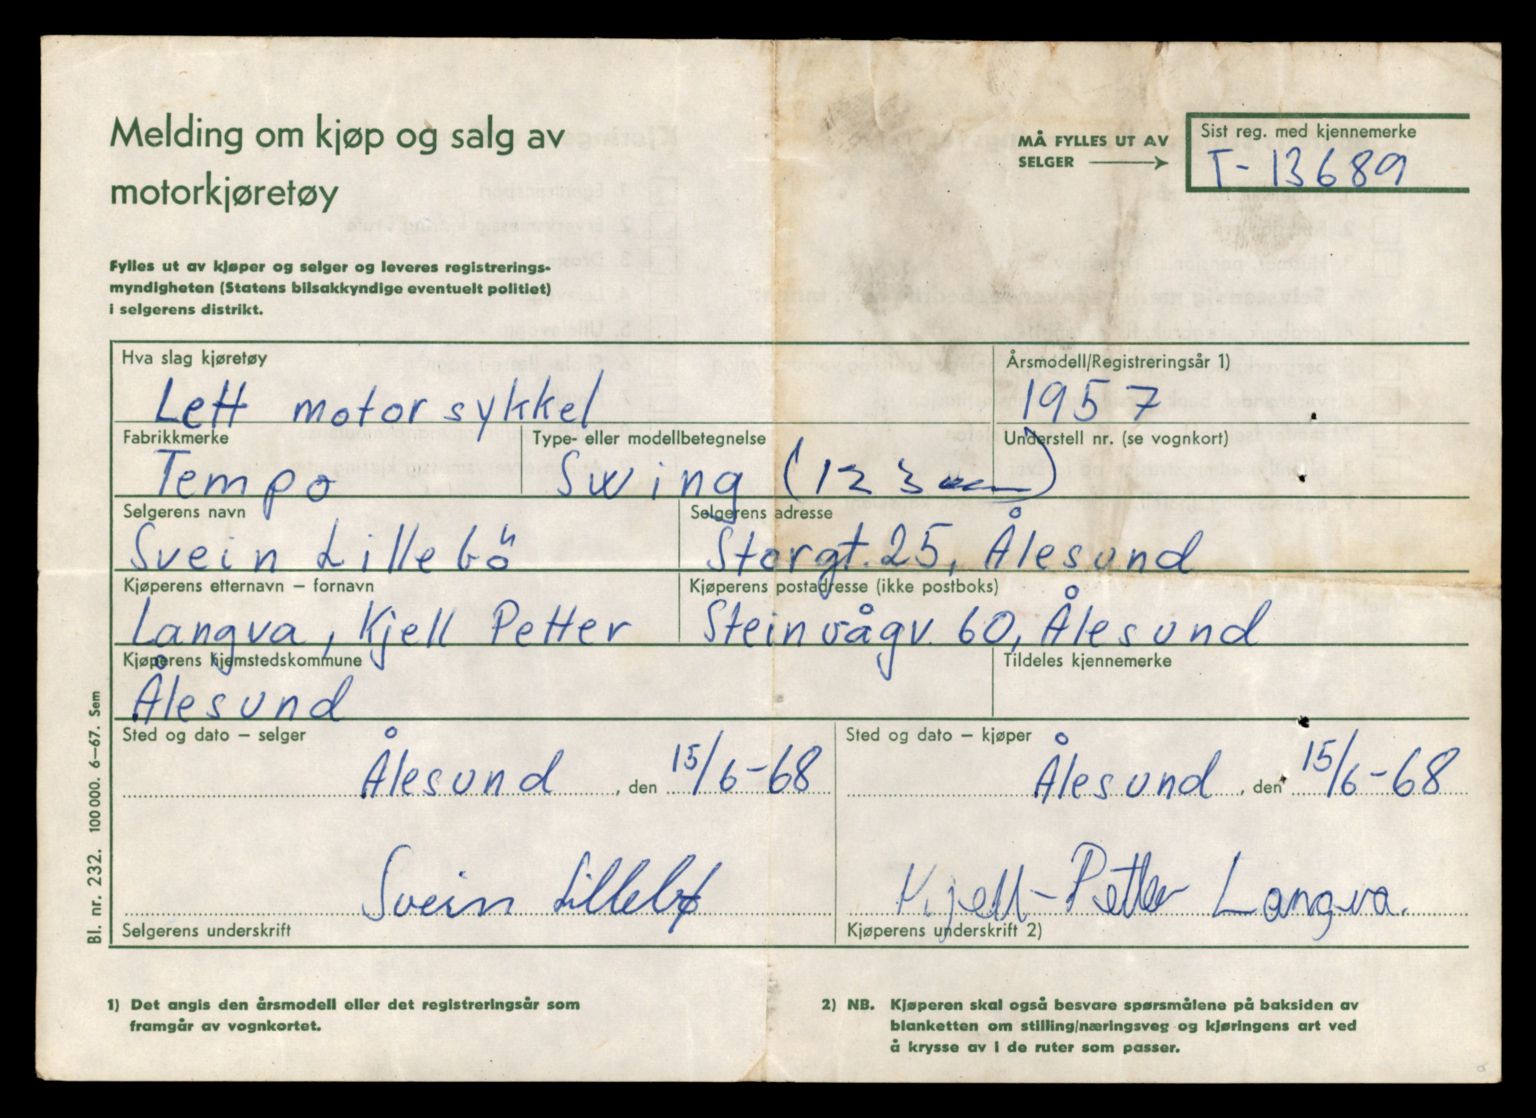 Melding om kjøp og salg av
motorkjøretøy
MÅ FYLLES UT AV
SELGER
Sist reg. med kjennemerke
T-13689
Fylles ut av kjøper og selger og leveres registrerings-
myndigheten (Statens bilsakkyndige eventuelt politiet)
i selgerens distrikt.
Hva slag kjøretøy
Årsmodell/Registreringsår 1)
Lett motorsykkel
1957
Fabrikkmerke
Type- eller modellbetegnelse
Understell nr. (se vognkort)
Tempo
Swing (123
Selgerens navn
Selgerens adresse
Svein Lillebö
Storgt. 25, Ålesund
Kjøperens etternavn – fornavn
Kjøperens postadresse (ikke postboks)
Langva, Kjell Petter
Steinvågv. 60, Ålesund
Kjøperens hjemstedskommune
Tildeles kjennemerke
Ålesund
Sted og dato – selger
Ålesund, den 15/6-68
Sted og dato – kjøper
Ålesund, den 15/6-68
Svein Lillebø
Selgerens underskrift
Kjell-Petter Langva.
Kjøperens underskrift 2)
Bl. nr. 232. 100 000. 6–67. Sem
1) Det angis den årsmodell eller det registreringsår som
framgår av vognkortet.
2) NB. Kjøperen skal også besvare spørsmålene på baksiden av
blanketten om stilling/næringsveg og kjøringens art ved
å krysse av i de ruter som passer.